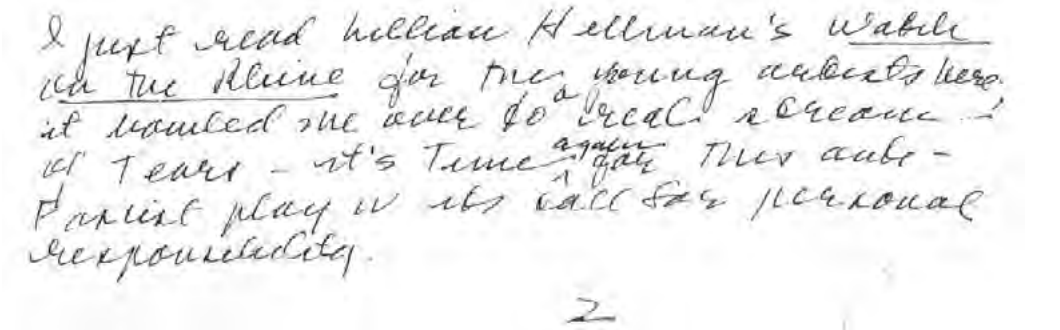 I just read Lillian Hellman's Watch
on the Rhine for the young artists here.
it bowled me over to a real stream
of Tears - it's Time again for This anti-
Fascist play w its call for personal
responsibility.
2